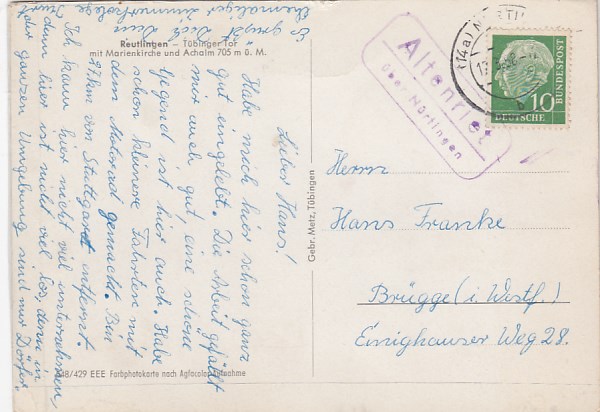 Reutlingen – Tübinger Tor
mit Marienkirche und Achalm 705 m ü. M.
Lieber Hans!
Habe mich hier schon ganz
gut eingelebt. Die Arbeit gefällt
mir auch gut, eine schöne
Gegend ist hier auch. Habe
schon kleinere Fahrten mit
dem Motorrad gemacht. Bin
27 km von Stuttgart entfernt.
Ich kann hier nicht viel unternehmen,
denn hier ist nicht viel los, denn in
der ganzen Umgebung sind nur Dörfer.
Es grüßt Dich Dein
ehemaliger Zimmerkollege
Kurt
Gebr. Metz, Tübingen
/429 EEE Farbphotokarte nach Agfacolor-Aufnahme
Altenriet
über Nürtingen
(14a)
10
DEUTSCHE
BUNDESPOST
Herrn
Hans Franke
Brügge (i. Westf.)
Einighauser Weg 28.